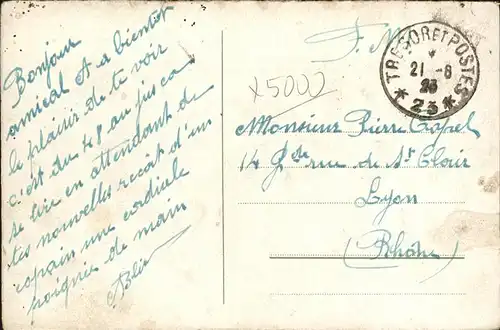 Bonjour
amical et a bientot
le plaisir de te voir
c'est du 48 au jus ca
se tire en attendant de
tes nouvelles reçoit d'un
copain une cordiale
poignée de main
F. M
TRESOR ET POSTES
21 - 8
23
* 23 *
x5000
Monsieur Pierre Capel
14 Gde rue de St Clair
Lyon
(Rhône)